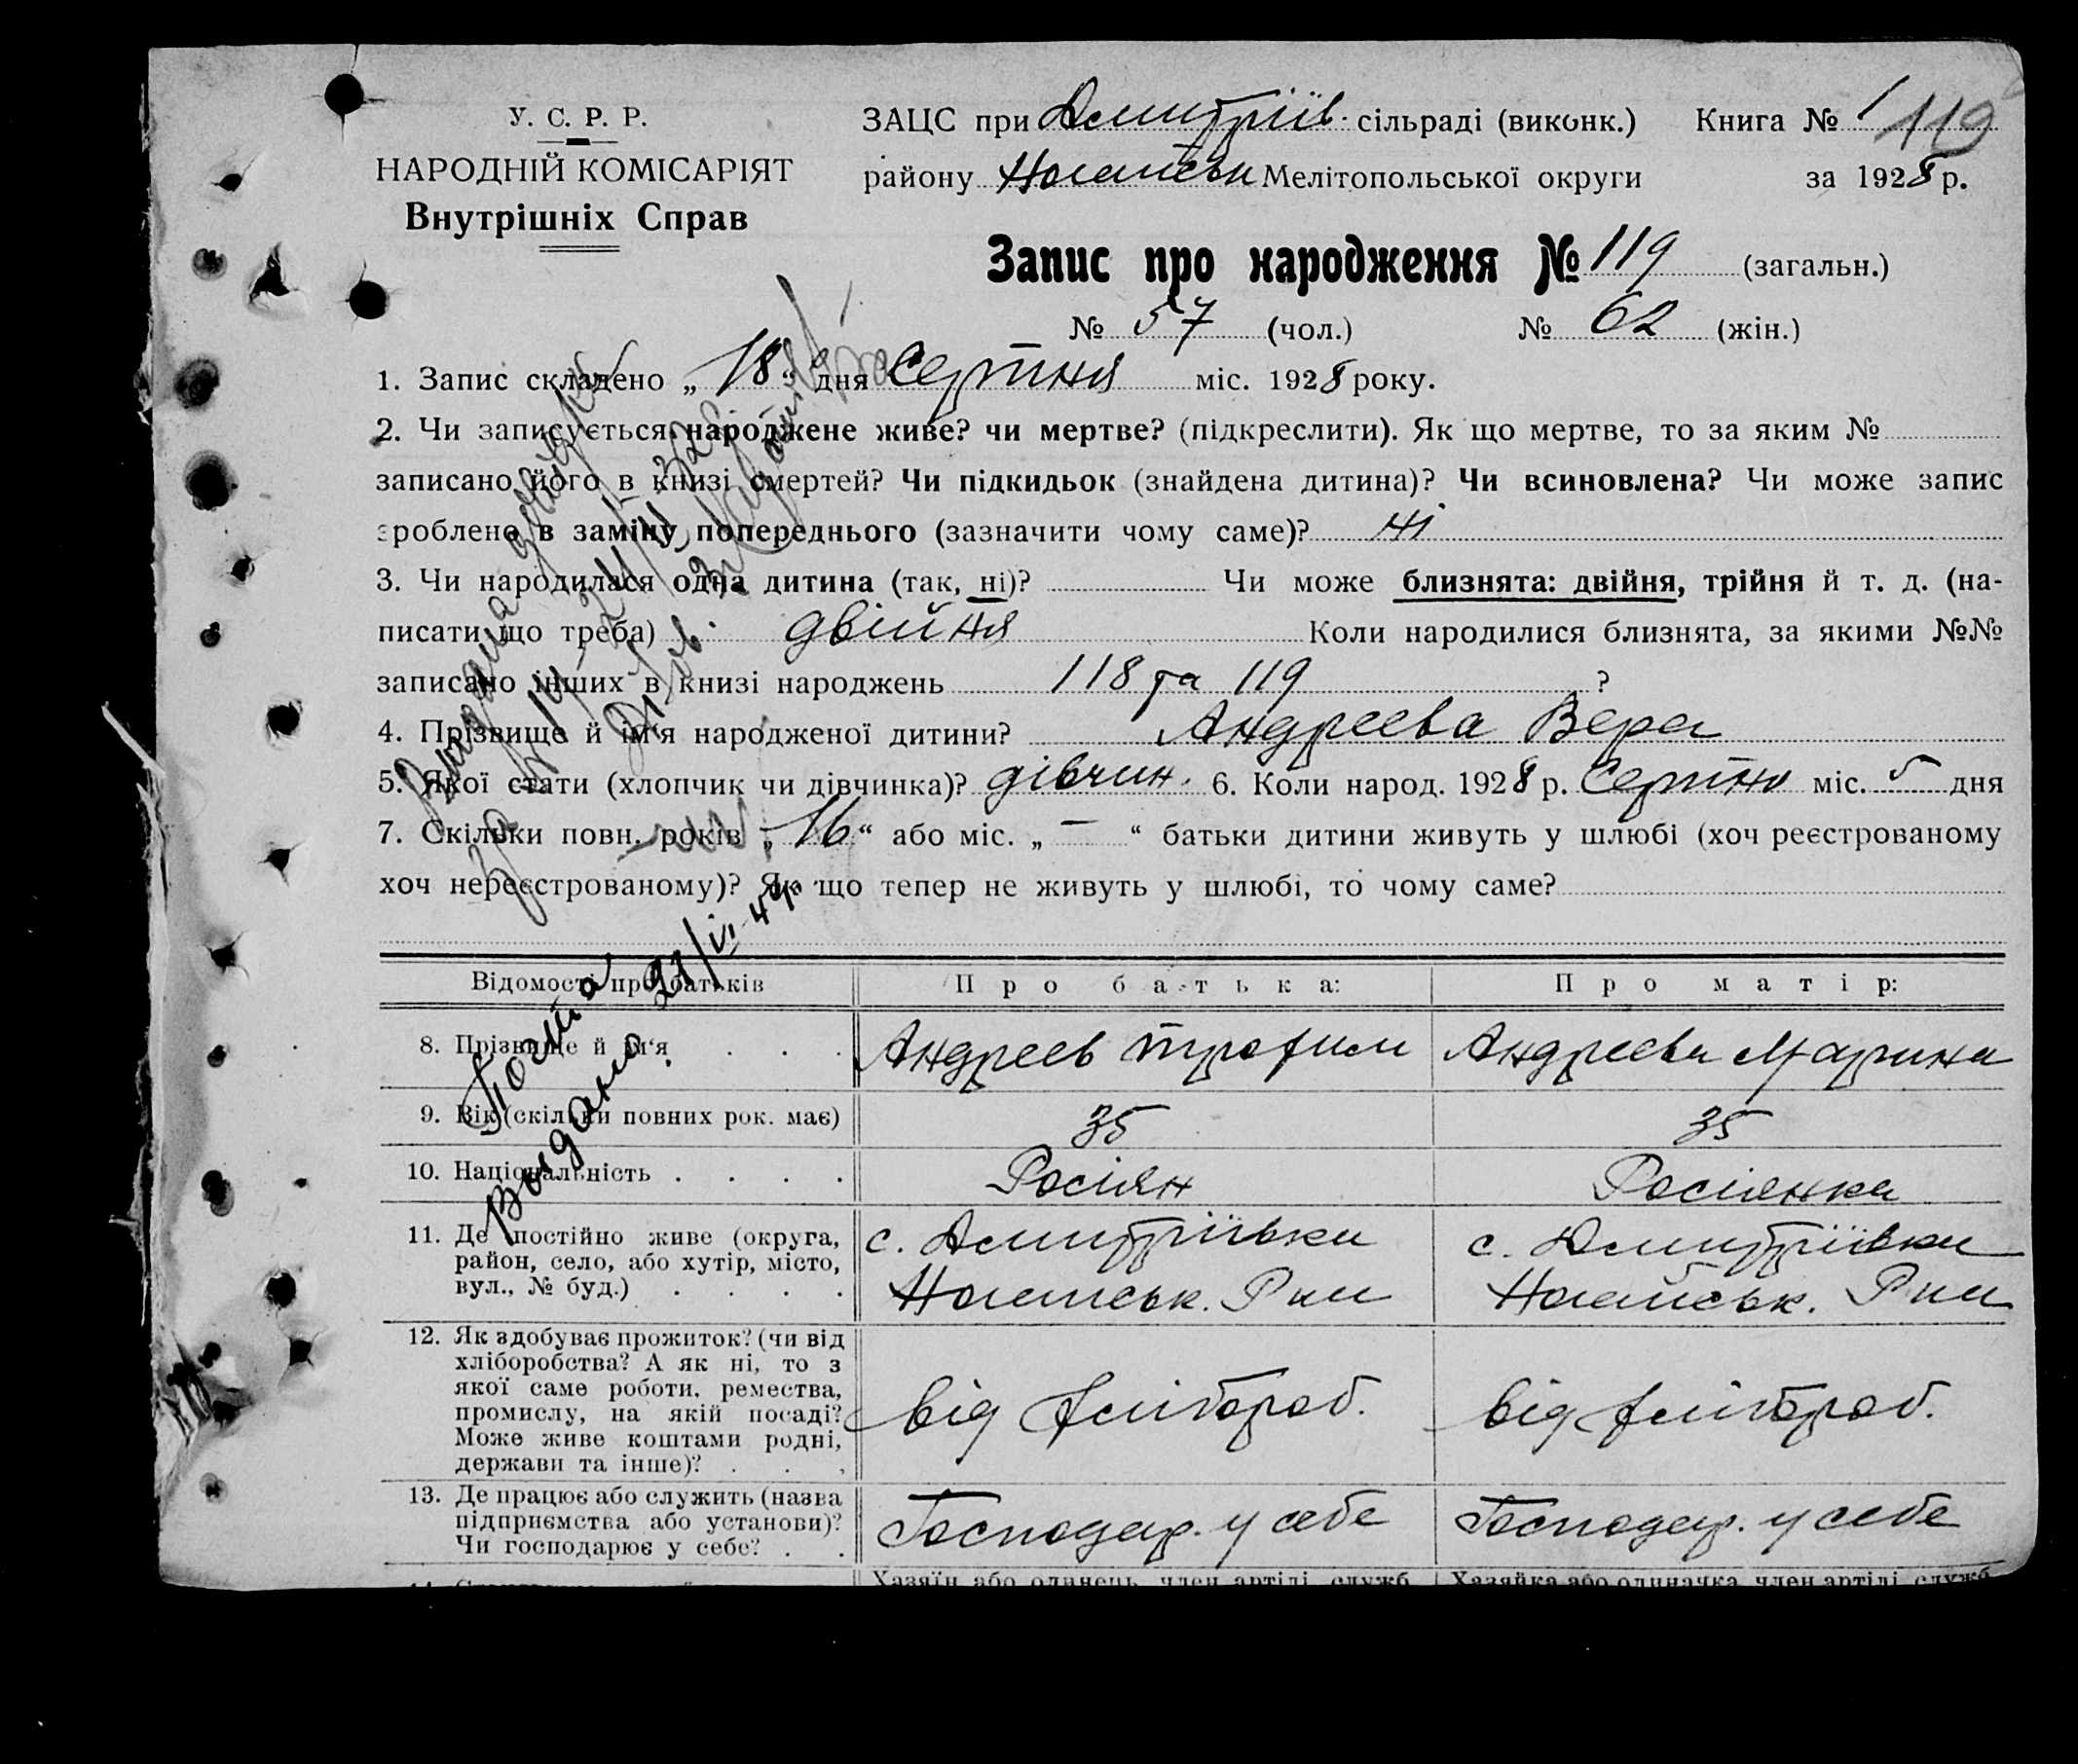 У. С. Р. Р.
НАРОДНІЙ КОМІСАРІЯТ
Внутрішніх Справ
ЗАЦС при Дмитріїв. сільраді (виконк.) Книга № 1 119
району Ногайськ Мелітопольської округи за 1928 р.
Запис про народження № 119 (загальн.)
№ 57 (чол.) № 62 (жін.)
1. Запис складено „ 18 “ дня Серпня міс. 1928 року.
2. Чи записується народжене живе? чи мертве? (підкреслити). Як що мертве, то за яким №
записано його в книзі смертей? Чи підкидьок (знайдена дитина)? Чи всиновлена? Чи може запис
зроблено в заміну попереднього (зазначити чому саме)? ні
3. Чи народилася одна дитина (так, ні)? Чи може близнята: двійня, трійня й т. д. (на-
писати що треба) двійня Коли народилися близнята, за якими №№
записано інших в книзі народжень 118 та 119 ?
4. Прізвище й ім‘я народженої дитини? Андреева Вера
5. Якої стати (хлопчик чи дівчинка)? дівчин. 6. Коли народ. 1928 р. Серпня міс. 5 дня
7. Скільки повн. років „ 16 “ або міс. „ — “ батьки дитини живуть у шлюбі (хоч реєстрованому
хоч нереєстрованому)? Як що тепер не живуть у шлюбі, то чому саме?
Видано
Відомості про батьків Про батька: Про матір:
8. Прізвище й ім‘я . . . Андреев Трофим Андреева Марина
9. Вік (скільки повних рок. має) 35 35
10. Національність . . . . Росіян Росіянка
11. Де постійно живе (округа,
район, село, або хутір, місто,
вул., № буд.) . . . .
с. Дмитріївки
Ногайськ. Р-ну
с. Дмитріївки
Ногайськ. Р-ну
12. Як здобуває прожиток? (чи від
хліборобства? А як ні, то з
якої саме роботи, ремества,
промислу, на якій посаді?
Може живе коштами родні,
держави та інше)? . . .
від хлібороб.
від хлібороб.
13. Де працює або служить (назва
підприємства або установи)?
Чи господарює у себе? . .
Господар. у себе
Господар. у себе
Хазяїн або одинець, член артілі, служб. Хазяйка або одиначка, член артілі, служб.